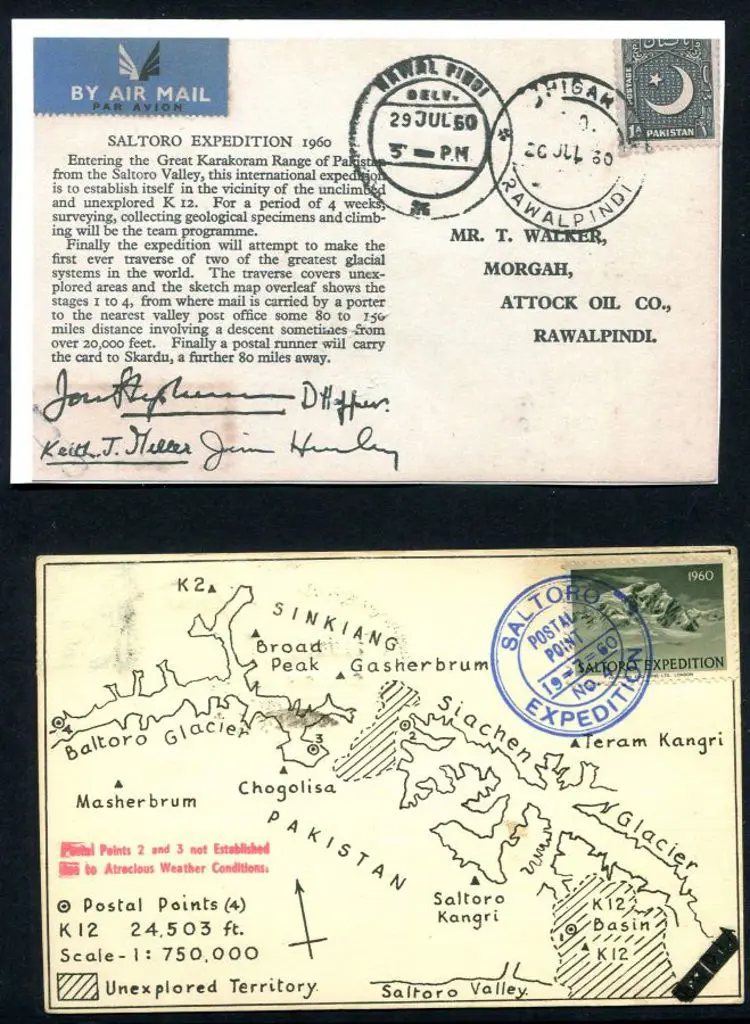 BY AIR MAIL
PAR AVION
RAWAL PINDI
DELV.
29 JUL 60
5 — P.M
SHIGAR
26 JUL 60
RAWALPINDI
POSTAGE
1A PAKISTAN
SALTORO EXPEDITION 1960
Entering the Great Karakoram Range of Pakistan
from the Saltoro Valley, this international expedition
is to establish itself in the vicinity of the unclimbed
and unexplored K 12. For a period of 4 weeks,
surveying, collecting geological specimens and climb-
ing will be the team programme.
Finally the expedition will attempt to make the
first ever traverse of two of the greatest glacial
systems in the world. The traverse covers unex-
plored areas and the sketch map overleaf shows the
stages 1 to 4, from where mail is carried by a porter
to the nearest valley post office some 80 to 150
miles distance involving a descent sometimes from
over 20,000 feet. Finally a postal runner will carry
the card to Skardu, a further 80 miles away.
MR. T. WALKER,
MORGAH,
ATTOCK OIL CO.,
RAWALPINDI.
Keith J. Miller Jim Hurley
K2
SINKIANG
Broad
Peak
Gasherbrum
1960
SALTORO EXPEDITION
SALTORO
POSTAL
POINT
NO.
EXPEDITION
4
Baltoro Glacier
3
2
Siachen
Glacier
Teram Kangri
Masherbrum
Chogolisa
PAKISTAN
Postal Points 2 and 3 not Established
Due to Atrocious Weather Conditions.
Saltoro
Kangri
Postal Points (4)
K12 24,503 ft.
Scale - 1: 750,000
Unexplored Territory.
Saltoro Valley.
K12
Basin
1
K12